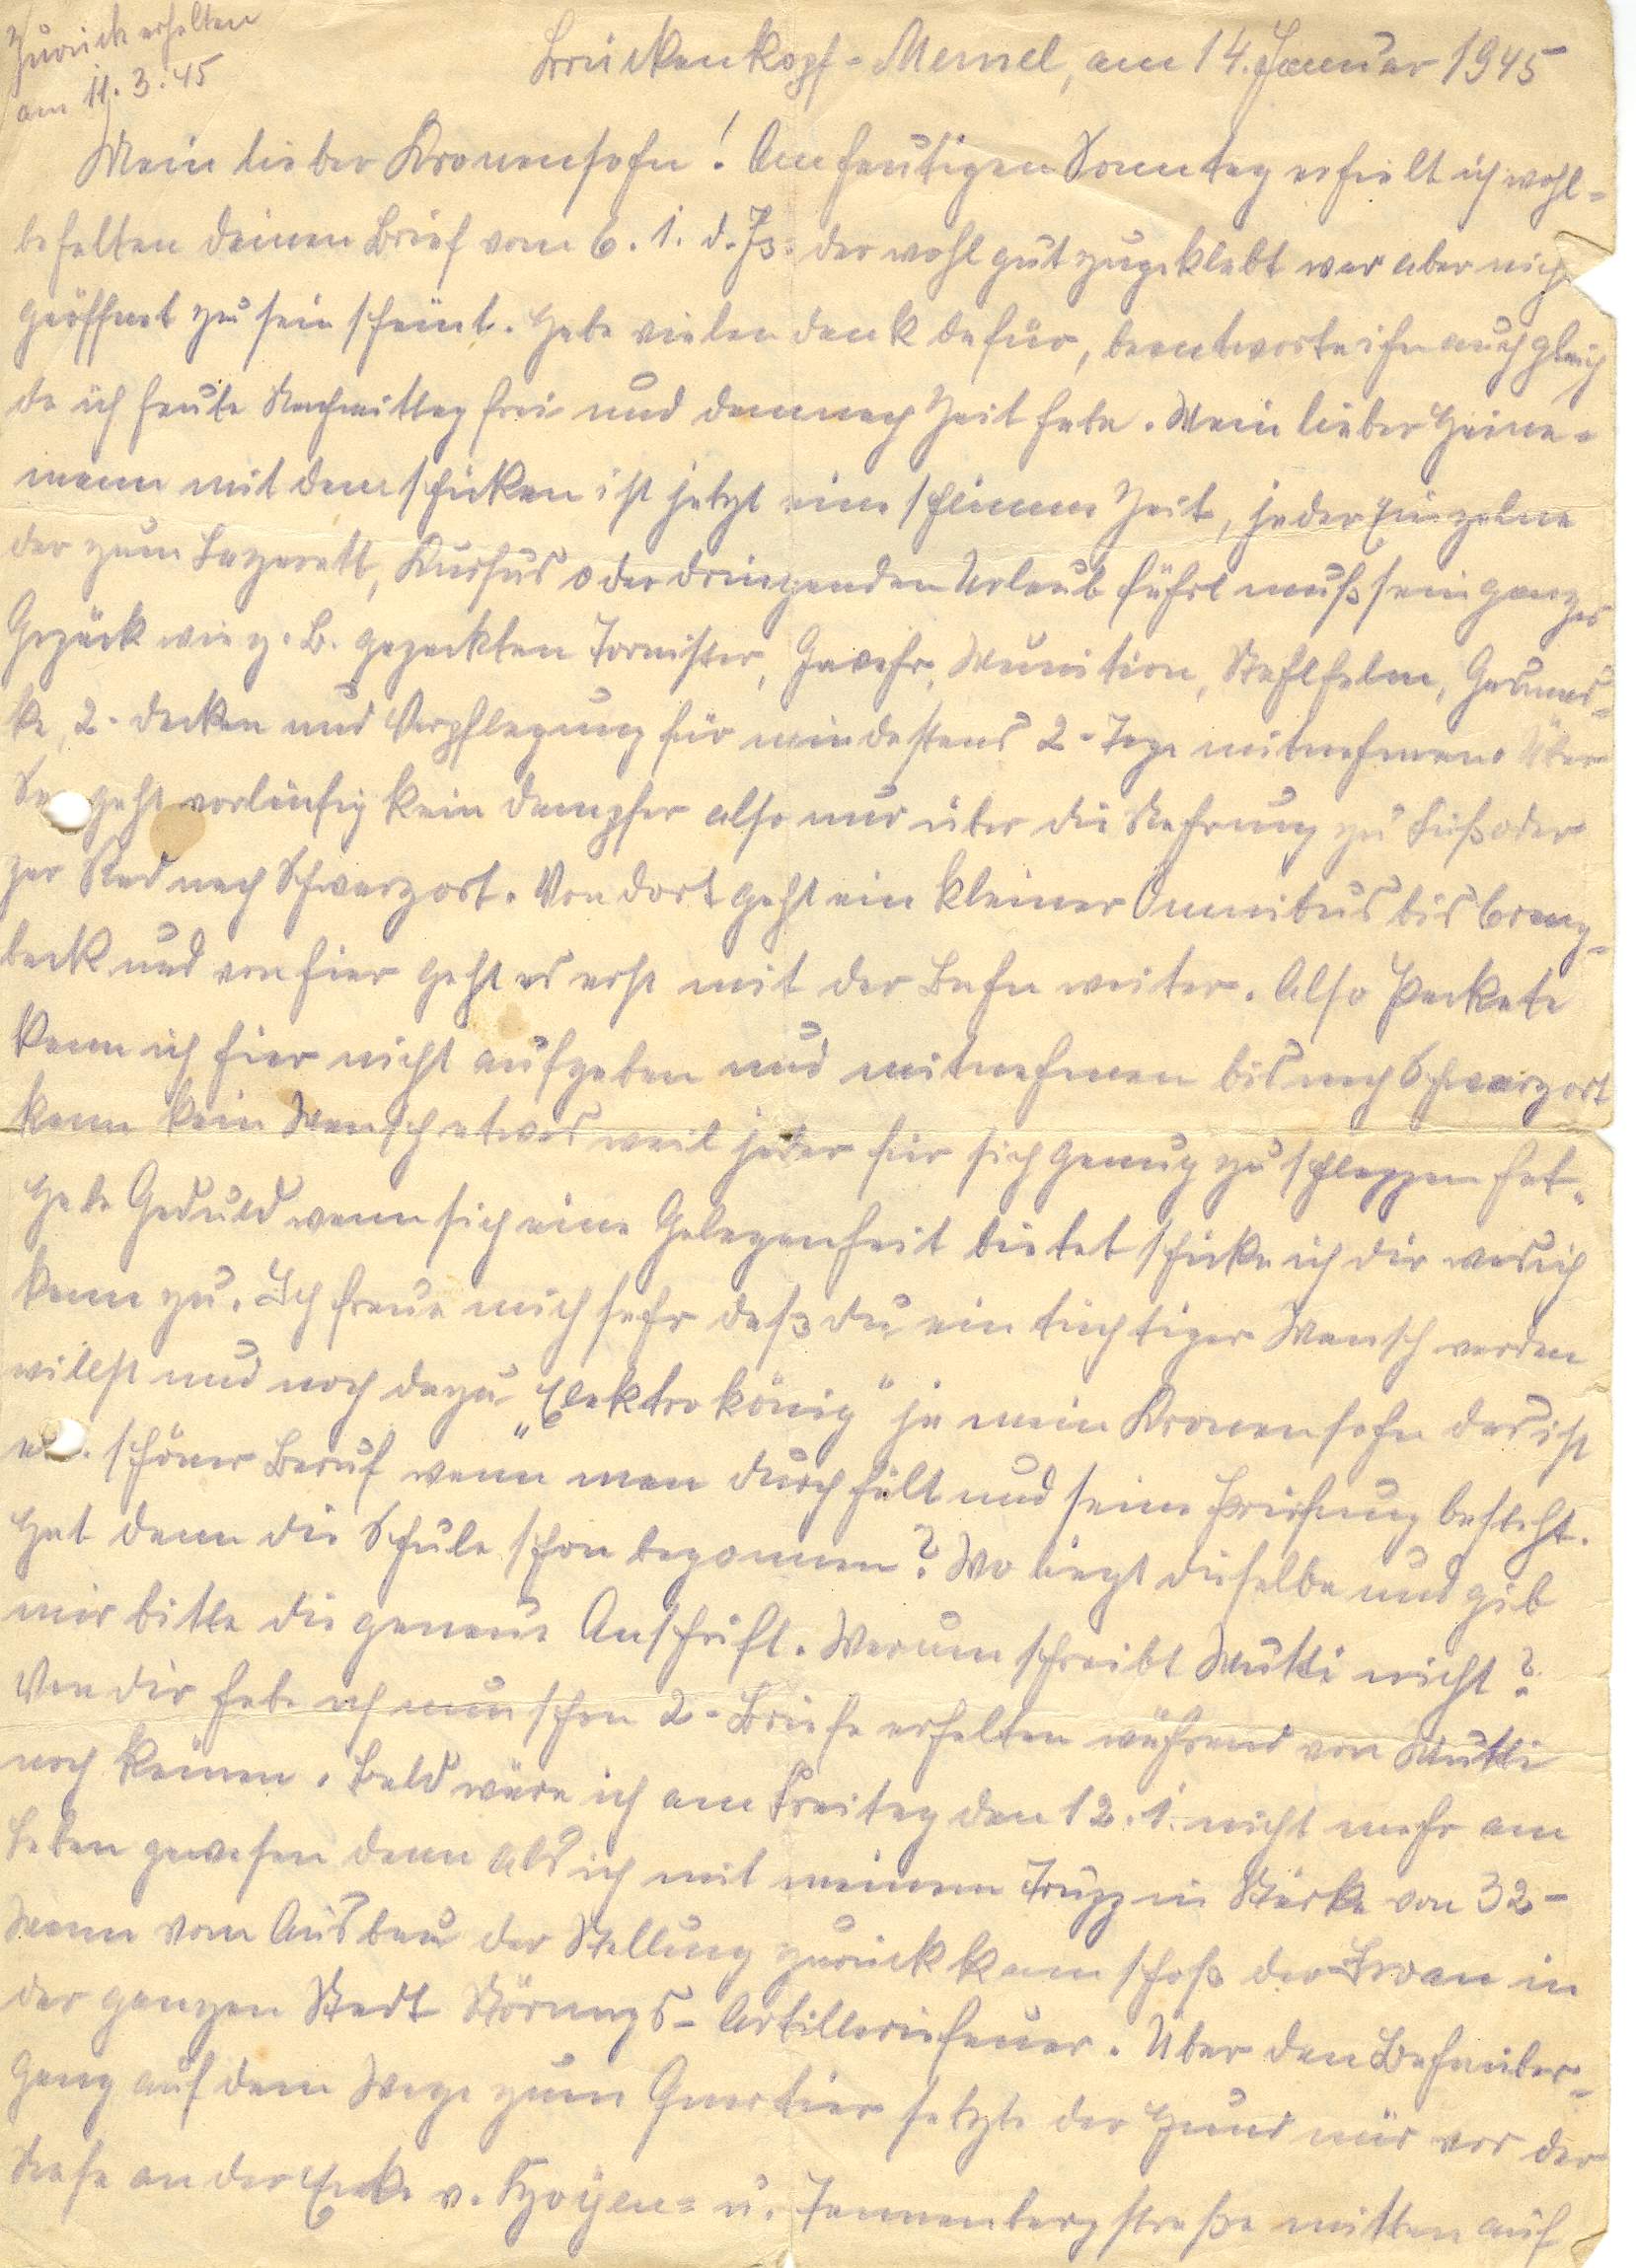 Zurück erhalten
am 11.3.45
Brückenkopf-Memel, am 14. Januar 1945
Mein lieber Kronensohn! Am heutigen Sonntag erhielt ich wohl-
behalten deinen Brief vom 6.1. d. Js. der wohl gut zugeklebt war aber nich
geöffnet zu sein scheint. Habe vielen Dank dafür, beantworte ihn auch gleich
da ich heute Nachmittag frei und demnach Zeit habe. Mein lieber Heine-
mann mit dem schicken ist jetzt eine schlimme Zeit, jeder Einzelne
der zum Lazarett, Kursus oder dringenden Urlaub fährt muß sein ganzes
Gepäck wie z. B. gepackten Tornister, Gewehr, Munition, Stahlhelm, Gasmas-
ke, 2-Decken und Verpflegung für mindestens 2-Tage mitnehmen. Über
geht vorläufig kein Dampfer also nur über die Nehrung zu Fuß oder
per Rad nach Schwarzort. Von dort geht ein kleiner Omnibus bis Cranz-
beck und von hier geht es erst mit der Bahn weiter. Also Packete
kann ich hier nicht aufgeben und mitnehmen bis nach Schwarzort
kann kein Mensch etwas weil jeder für sich genug zu schleppen hat.
Habe Geduld wenn sich eine Gelegenheit bietet schicke ich dir was ich
kann zu. Ich freue mich sehr daß du ein tüchtiger Mensch werden
willst und noch dazu „Elektrokönig" ja mein Kronensohn das ist
schöner Beruf wenn man durchhält und seine Prüfung besteht.
Hat denn die Schule schon begonnen? Wo liegt dieselbe und gib
mir bitte die genaue Anschrift. Warum schreibt Mutti nicht?
Von dir habe ich nun schon 2-Briefe erhalten während von Mutti
noch keinen. Bald wäre ich am Freitag den 12.1. nicht mehr am
Leben gewesen denn als ich mit meinem Trupp in Stärke von 32-
Mann vom Ausbau der Stellung zurück kam schoß der Iwan in
der ganzen Stadt Störungs-Artilleriefeuer. Über den Bahnüber-
gang auf dem Wege zum Quartier setzte der Hund mir vor der
Nase an der Ecke v. - u. Tannenbergstraße mitten auf